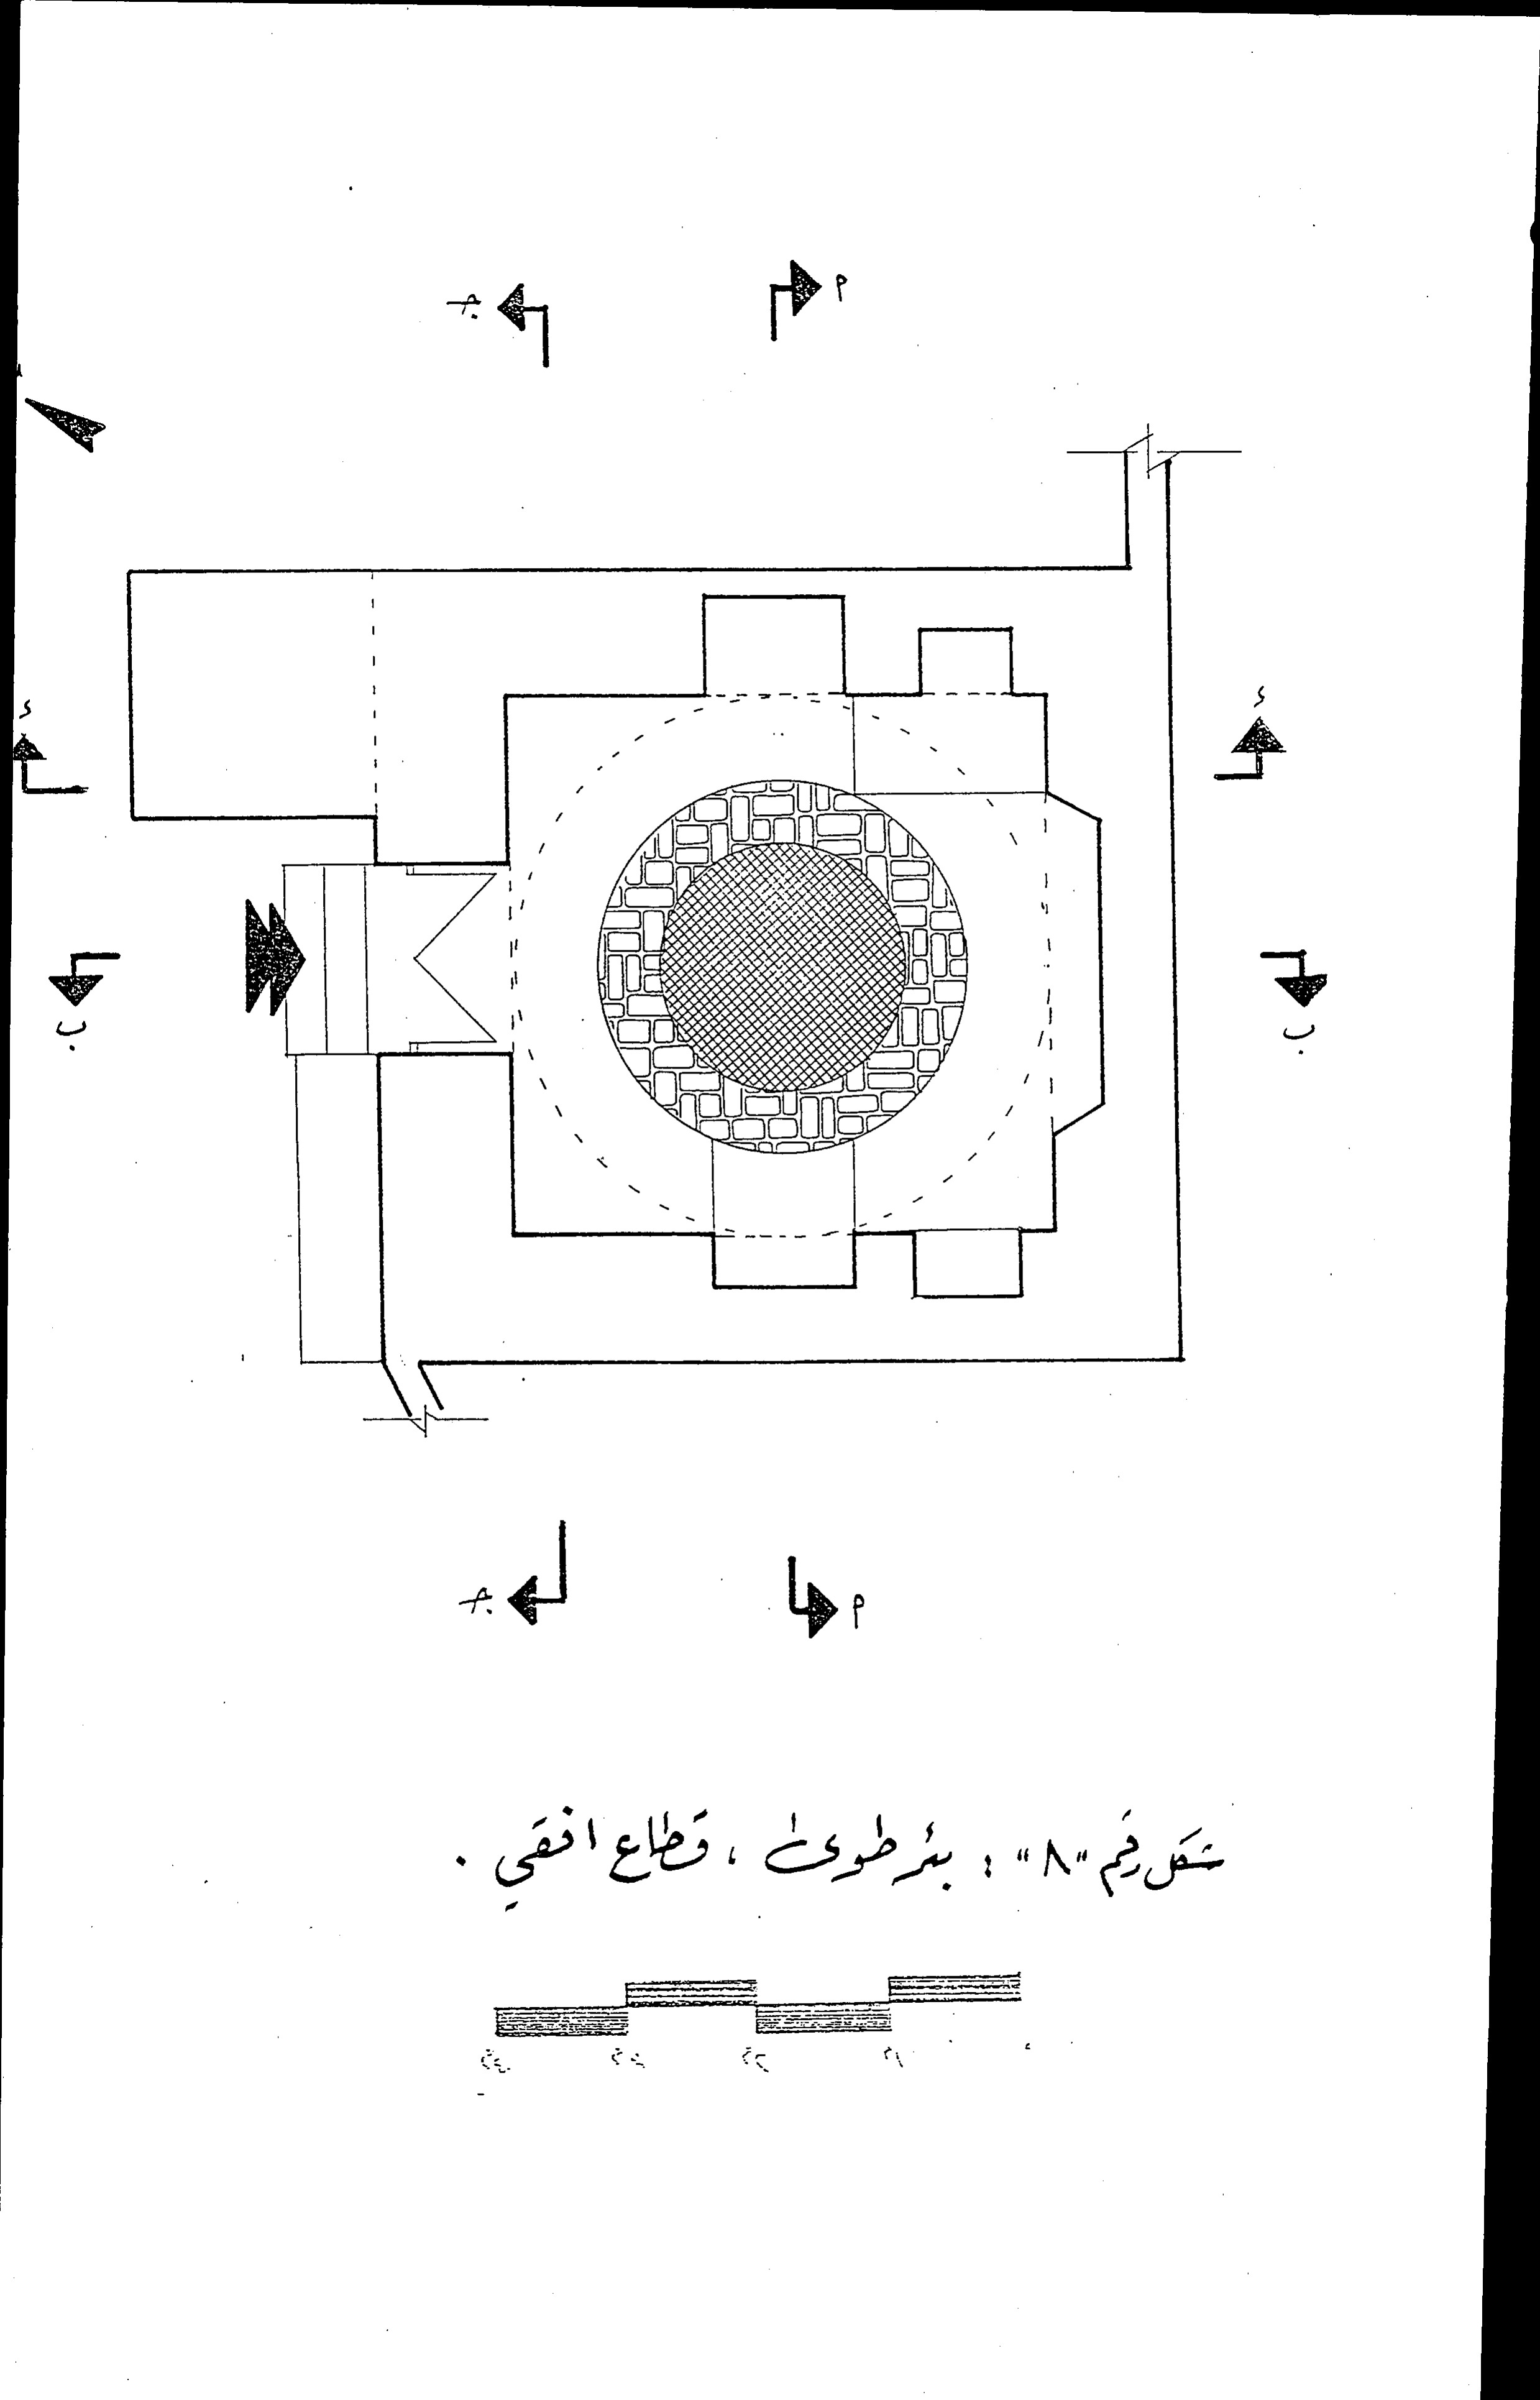 جـ م
د د
ب ب
جـ م
شكل رقم "٨" : بئر طوى ، قطاع افقي .